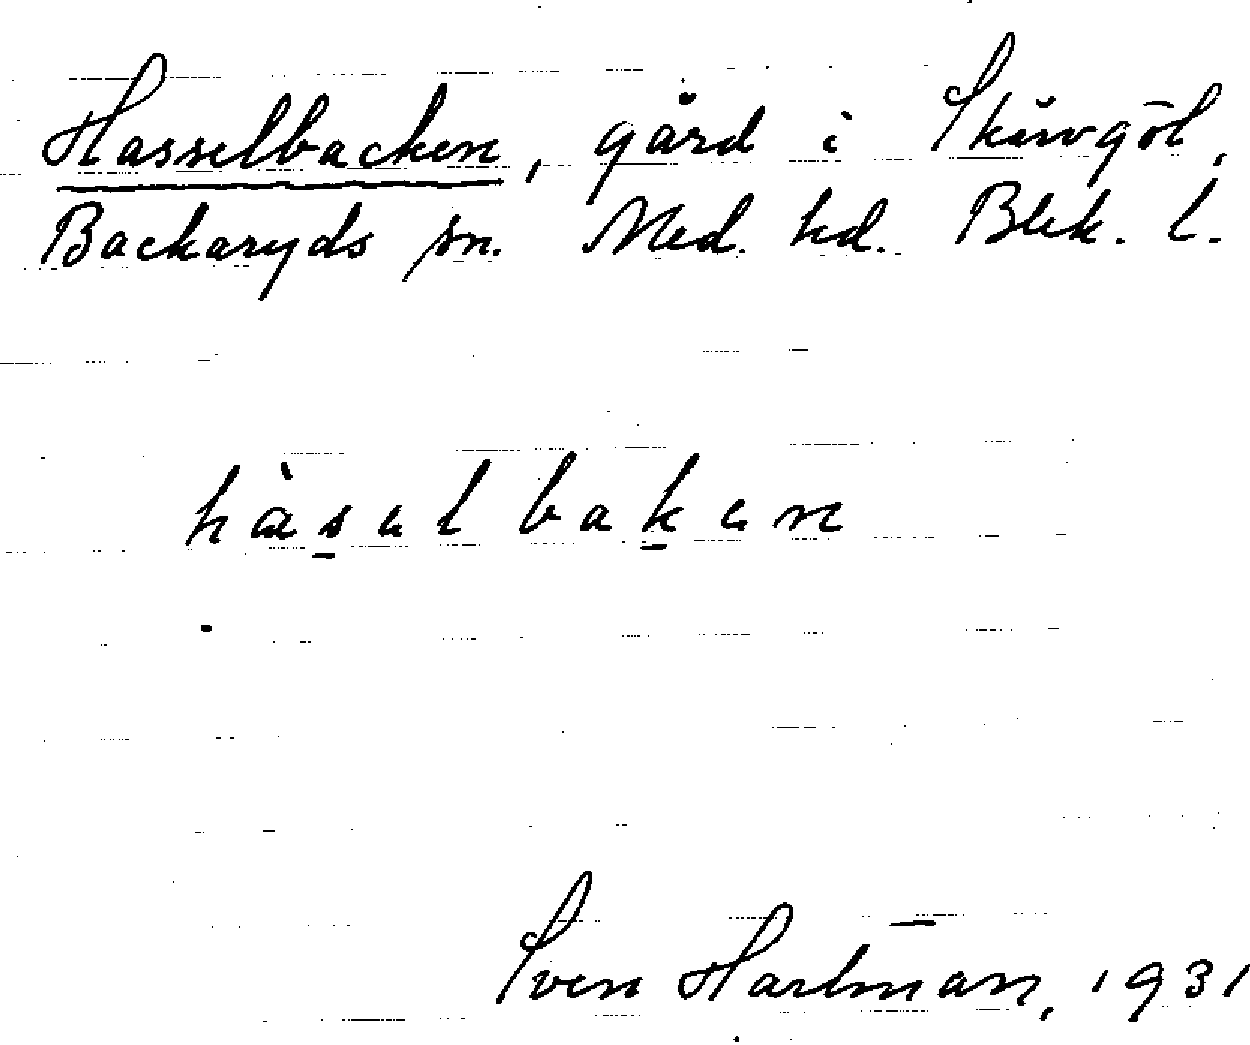 Hasselbacken, gård i Skürvgöl,
Backaryds sn. Med. hd. Blek. l.
hàsəlbakən
Sven Hartman, 1931